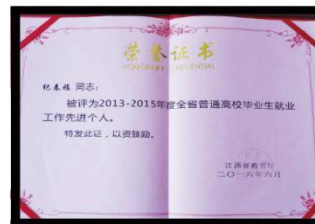 荣誉证书
HONORARY CREDENTIAL
纪春福 同志：
被评为2013-2015年度全省普通高校毕业生就业
工作先进个人。
特发此证，以资鼓励。
江西省教育厅
二〇一六年六月